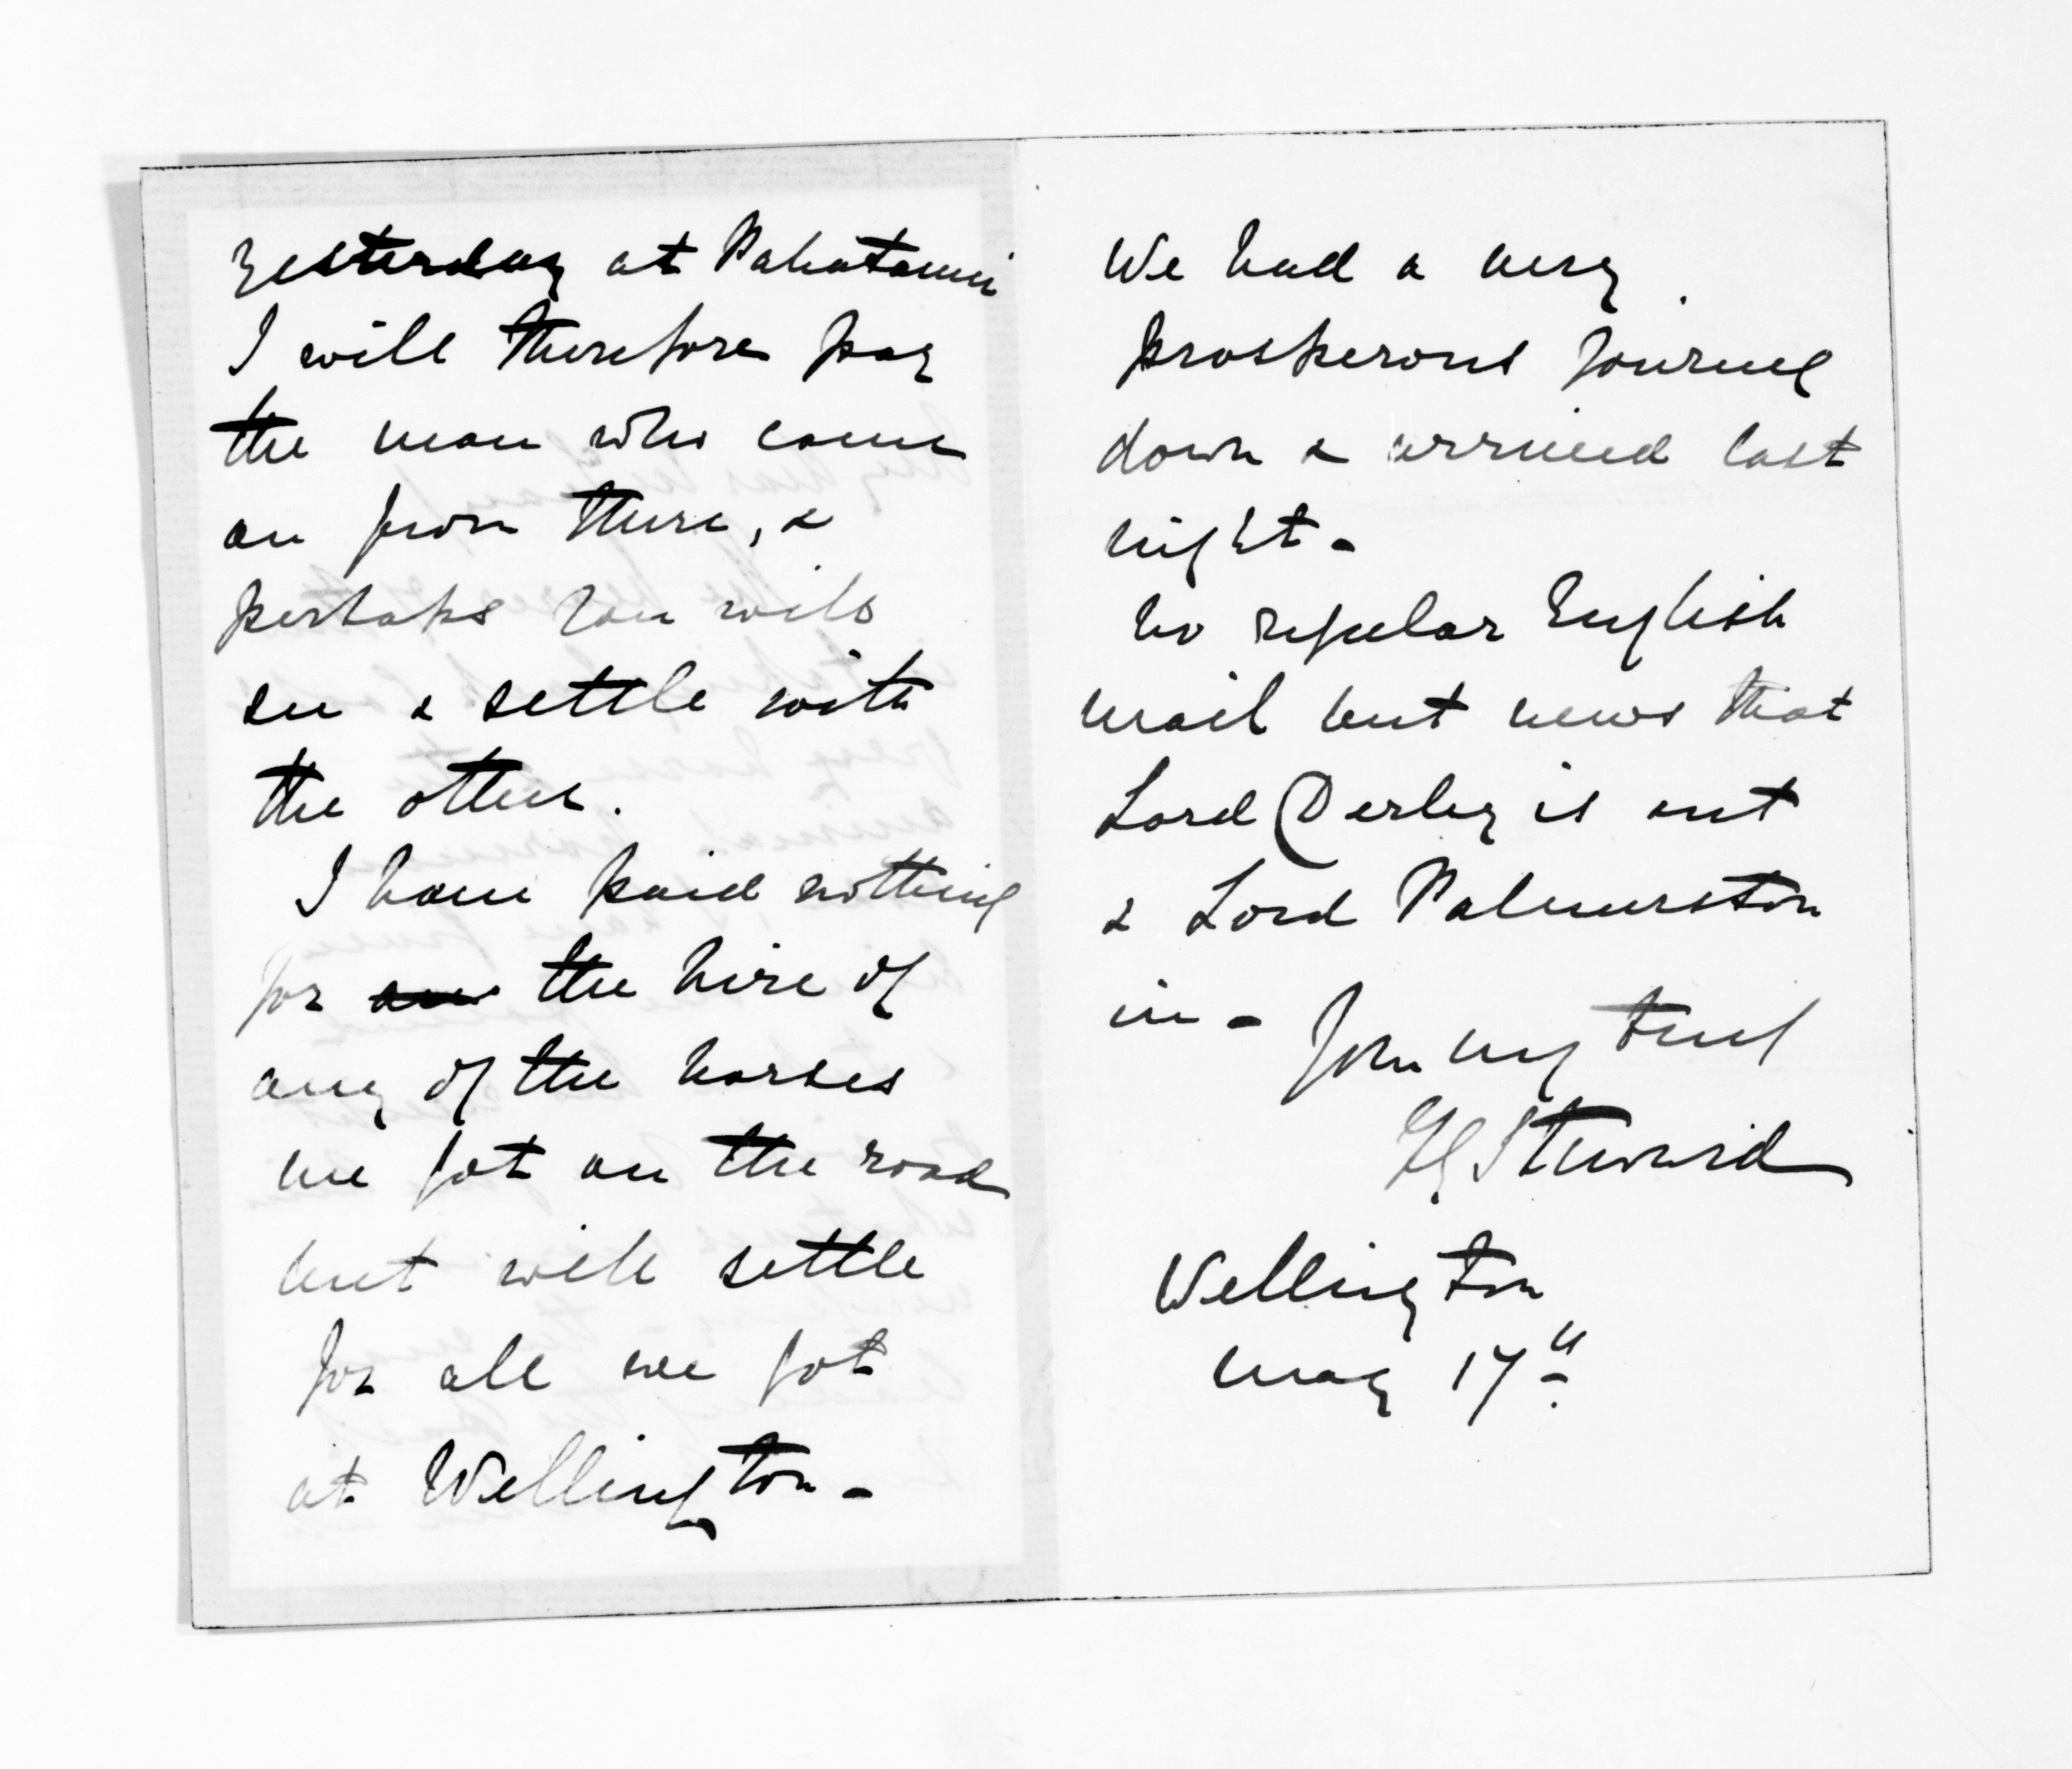 Yesterday at Pahatanui
I will therefore pay
the man who came
on from there, &
perhaps you will
see & settle with
the other.
I have paid nothing
for the hire of
any of the horses
we got on the road
but will settle
for all we got
at Wellington -
We had a very
prosperous journey
down & arrived last
night -
No regular English
mail but news that
Lord Derby is out
& Lord Palmerston
in -
Yrs very truly
Wellington
May 17th